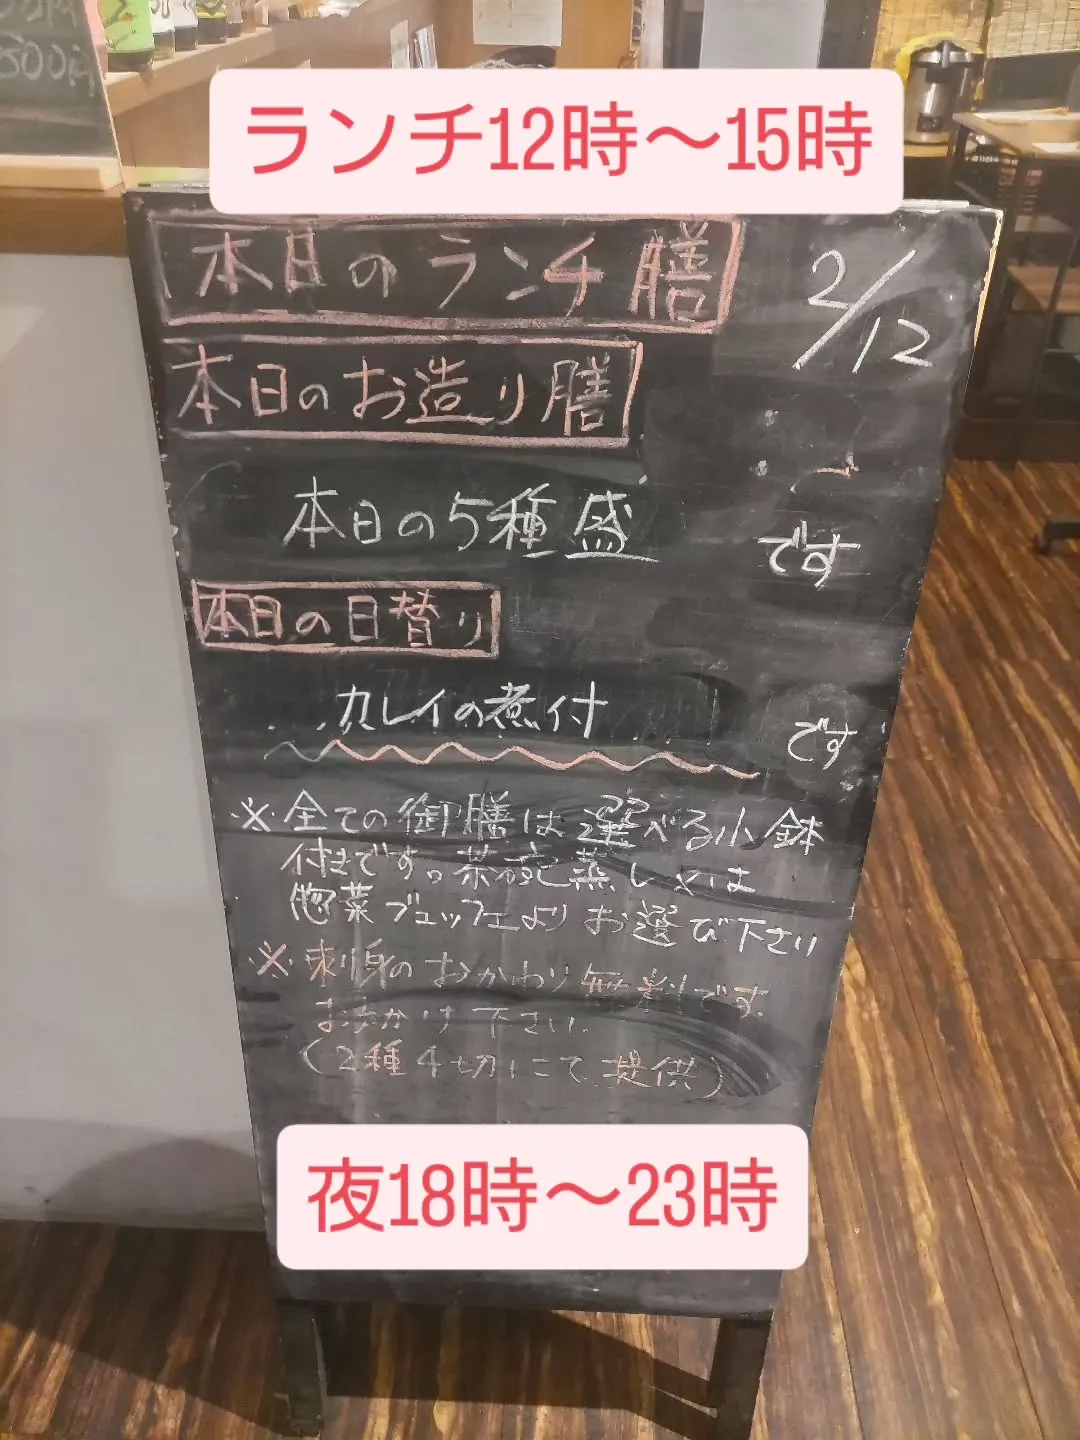 500円
ランチ12時〜15時
本日のランチ膳
2/12
本日のお造り膳
本日の5種盛 です
本日の日替り
カレイの煮付 です
※全ての御膳は選べる小鉢
付きです。茶碗蒸し又は
惣菜ブュッフェよりお選び下さい
※刺身のおかわり無料です。
お声かけ下さい。
(2種4切にて提供)
夜18時〜23時